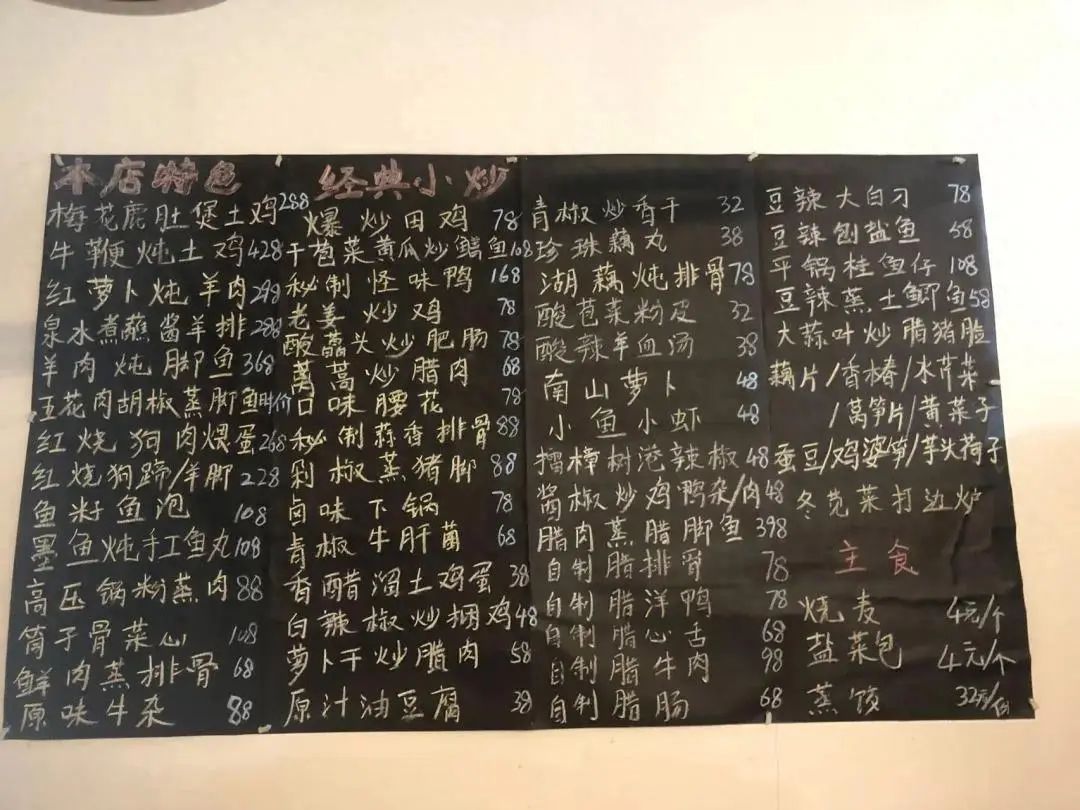 本店特色
梅花鹿肚煲土鸡288
牛鞭炖土鸡428
红萝卜炖羊肉298
泉水煮蘸酱羊排288
羊肉炖脚鱼368
五花肉胡椒蒸脚鱼时价
红烧狗肉煨蛋268
红烧狗蹄/羊脚228
鱼籽鱼泡108
墨鱼炖手工鱼丸108
高压锅粉蒸肉88
筒子骨菜心108
鲜肉蒸排骨68
原味牛杂88
经典小炒
爆炒田鸡78
干苞菜黄瓜炒鳝鱼108
秘制怪味鸭168
老姜炒鸡78
酸藠头炒肥肠78
蒿炒腊肉68
口味腰花78
秘制蒜香排骨88
剁椒蒸猪脚88
卤味下锅78
青椒牛肝菌68
香醋溜土鸡蛋38
白辣椒炒捆鸡48
萝卜干炒腊肉58
原汁油豆腐38
青椒炒香干32
珍珠藕丸38
湖藕炖排骨78
酸苞菜粉皮32
酸辣羊血汤38
南山萝卜48
小鱼小虾48
擂樟树港辣椒48
酱椒炒鸡鸭杂/肉48
腊肉蒸腊脚鱼398
自制腊排骨78
自制腊洋鸭78
自制腊心舌68
自制腊牛肉98
自制腊肠68
豆辣大白刁78
豆辣刨盐鱼58
平锅桂鱼仔108
豆辣蒸土鲫鱼58
大蒜叶炒腊猪脸
藕片/香椿/水芹菜
/莴笋片/黄菜子
蚕豆/鸡婆笋/芋头荷子
冬苋菜打边炉
主食
烧麦4元/个
盐菜包4元/个
蒸饺32元/份